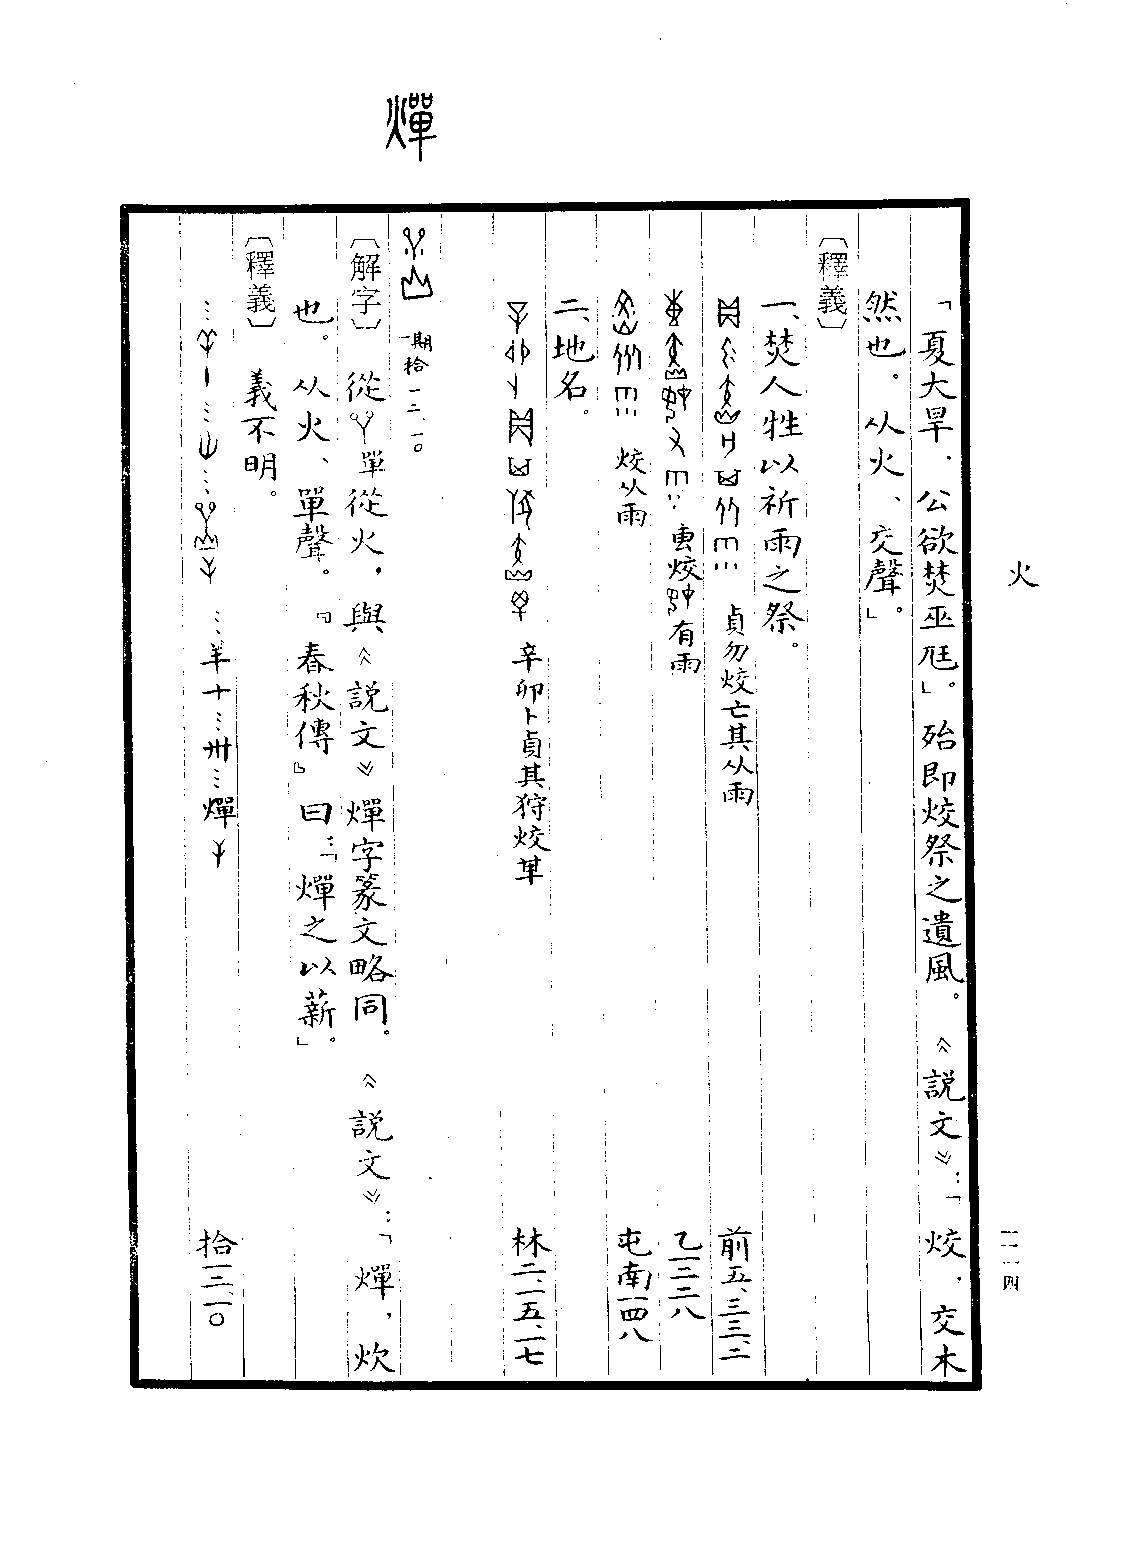 燀
火
一一一四
「夏大旱，公欲焚巫尪」。殆即烄祭之遺風。《說文》：「烄，交木
然也。从火、交聲」。
〔釋義〕
一、焚人牲以祈雨之祭。
貞勿烄亡其从雨 前五、三三、二
烄有雨 乙一二二八
烄从雨 屯南一四八
二、地名。
辛卯卜貞其狩烄 林二、一五、一七
一期 拾一三、一〇
〔解字〕 從單從火，與《說文》燀字篆文略同。《說文》：「燀，炊
也。从火、單聲。『春秋傳』曰：「燀之以薪。」
〔釋義〕 義不明。
…羊十…卅…燀 拾一三、一〇